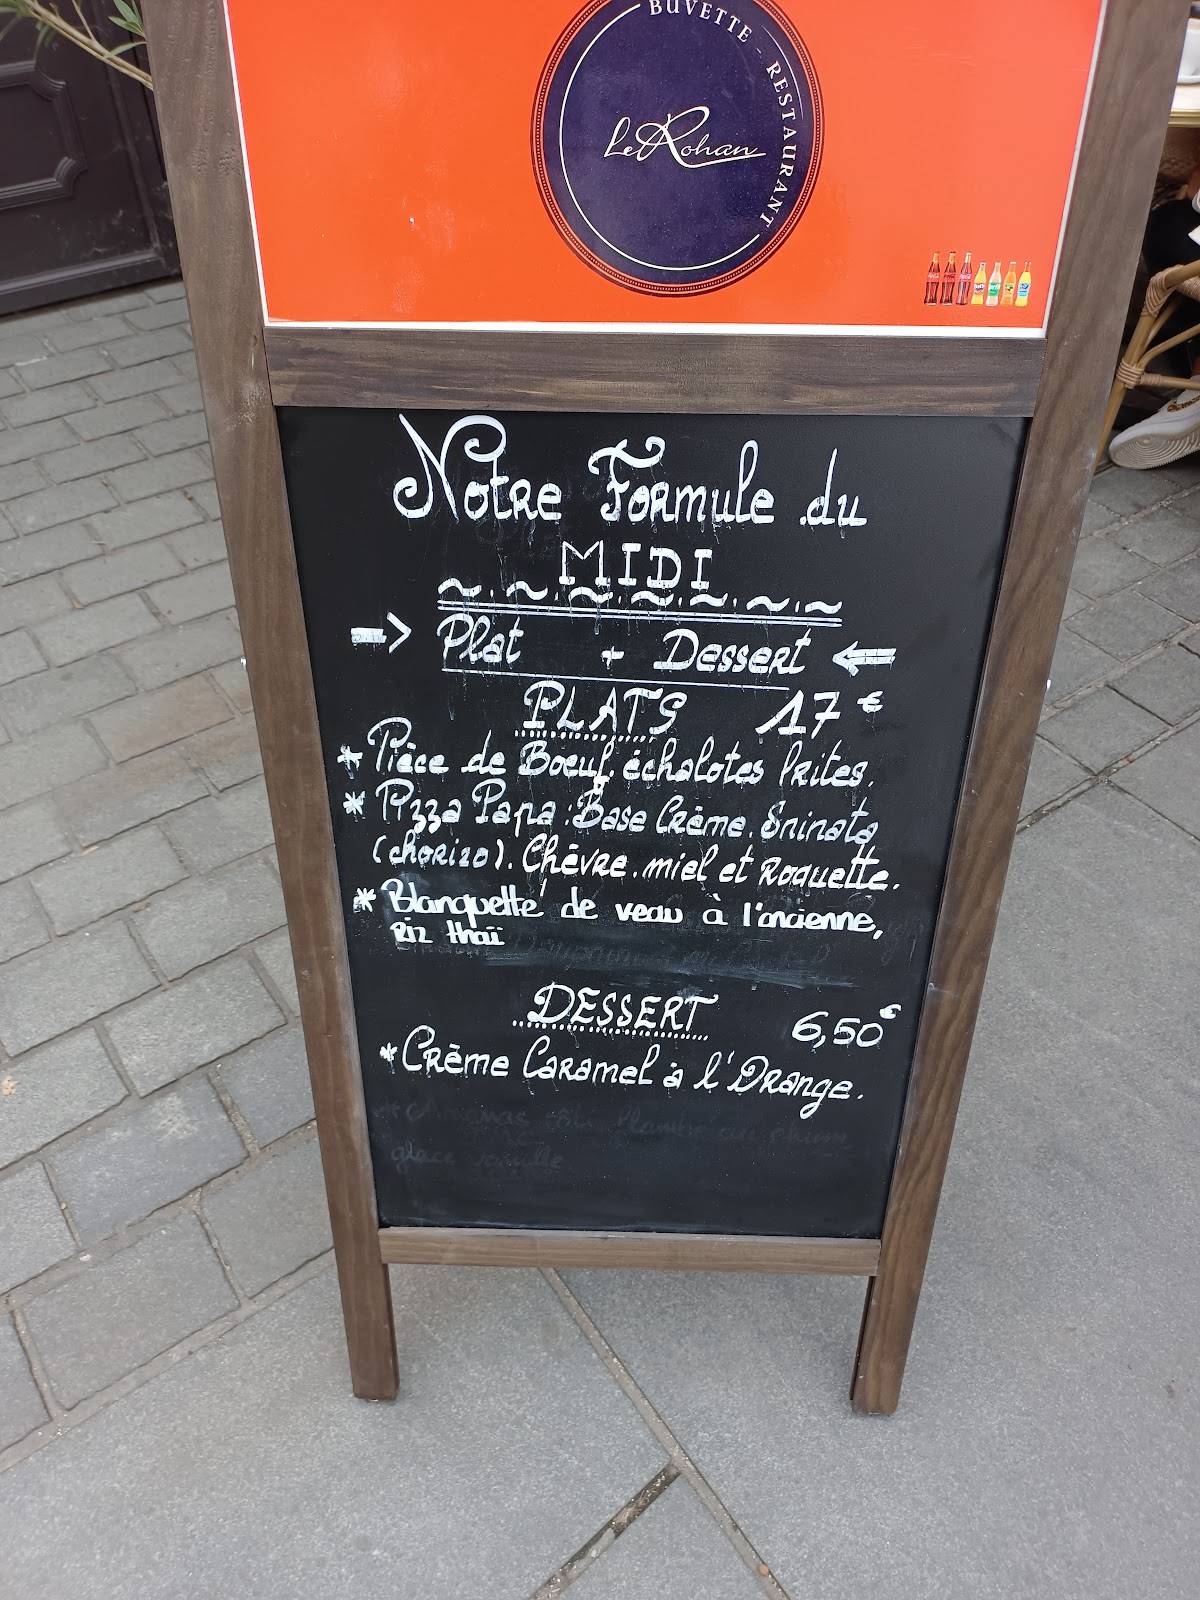 BUVETTE - RESTAURANT
Le Rohan
Notre Formule du
MIDI
Plat + Dessert
PLATS 17€
* Pièce de Boeuf, échalotes frites.
* Pizza Papa : Base Crème. Spinata
(chorizo). Chèvre. miel et Roquette.
* Blanquette de veau à l'ancienne,
Riz thaï
DESSERT 6,50€
* Crème Caramel à l'Orange.
glace vanille